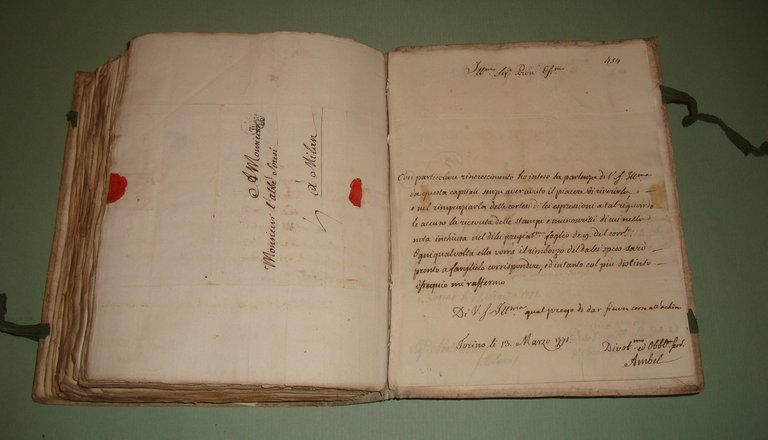 A Monsieur
Monsieur l'abbé
à Milan
454
Ill.mo Sig.
Con particolare rincrescimento ho inteso la partenza di V. S. Ill.ma
da questa capitale senza aver avuto il piacere di riverirla
e nel ringraziarla delle cortesi di lei espressioni a tal riguardo
le accuso la ricevuta delle stampe e manoscritti di cui nella
nota inchiusa nel di lei pregiat.mo foglio de 9. del corr.te
Ogni qual volta ella vorrà il rimborzo del da lei speso sarò
pronto a farglielo corrispondere, ed intanto col più distinto
ossequio mi raffermo
Di V. S. Ill.ma qual prego di dar
Torino li 13. Marzo 1771.
Divot.mo ed Obbl.o
Ambel